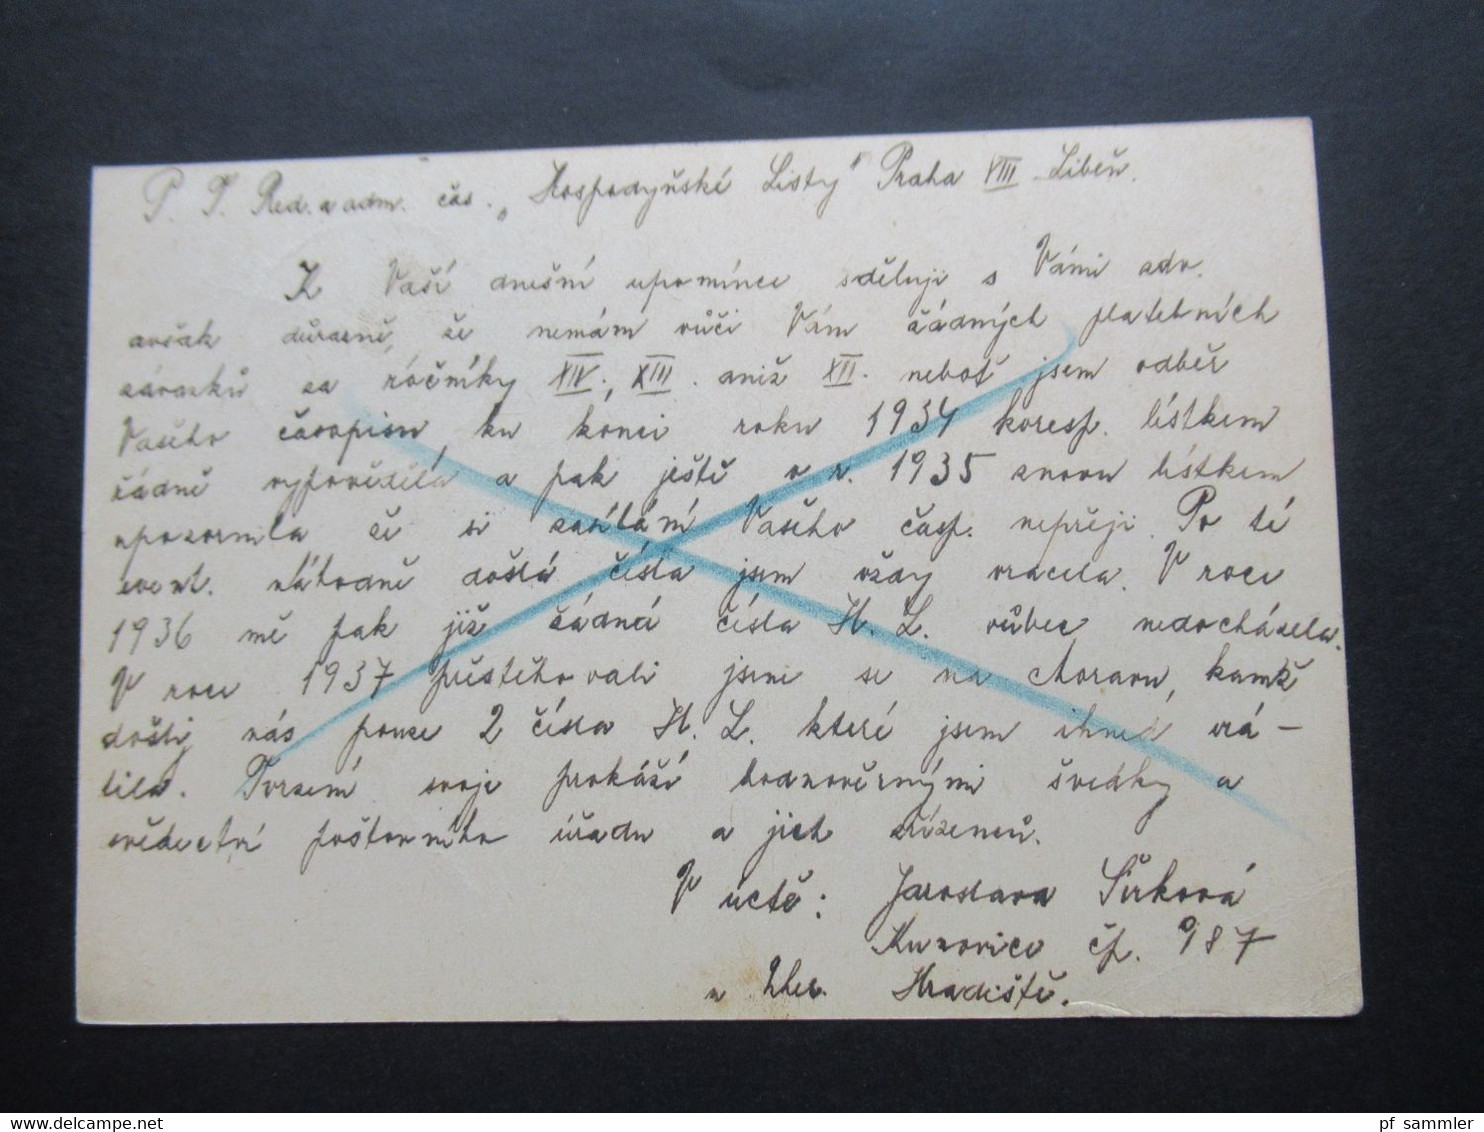 P. T. Red. a adm. čas. „Hospodyňské Listy" Praha VIII Libeň.
K Vaší dnešní upomínce sděluji s Vámi zdv.
avšak důrazně, že nemám vůči Vám žádných platebních
závazků za ročníky XIV., XIII. aniž XII. neboť jsem odběr
Vašeho časopisu ku konci roku 1934 koresp. lístkem
řádně vypověděla a pak ještě v r. 1935 znovu lístkem
upozornila že si zasílání Vašeho čašp. nepřeji. Po té
event. náhodně došlá čísla jsem vždy vracela. V roce
1936 mě pak již žádná čísla H. L. vůbec nedocházela.
V roce 1937 přestěhovali jsme se na Moravu, kamž
došly nás pouze 2 čísla H. L. které jsem ihned vrá-
tila. Tvrzení svoje prokáží hodnověrnými švědky a
svědectví poštovního úřadu a jich zřízenců.
V úctě: Jaroslava Šírková
Kunovice čp. 987
u Uher. Hradiště.
pf sammler
delcampe.net